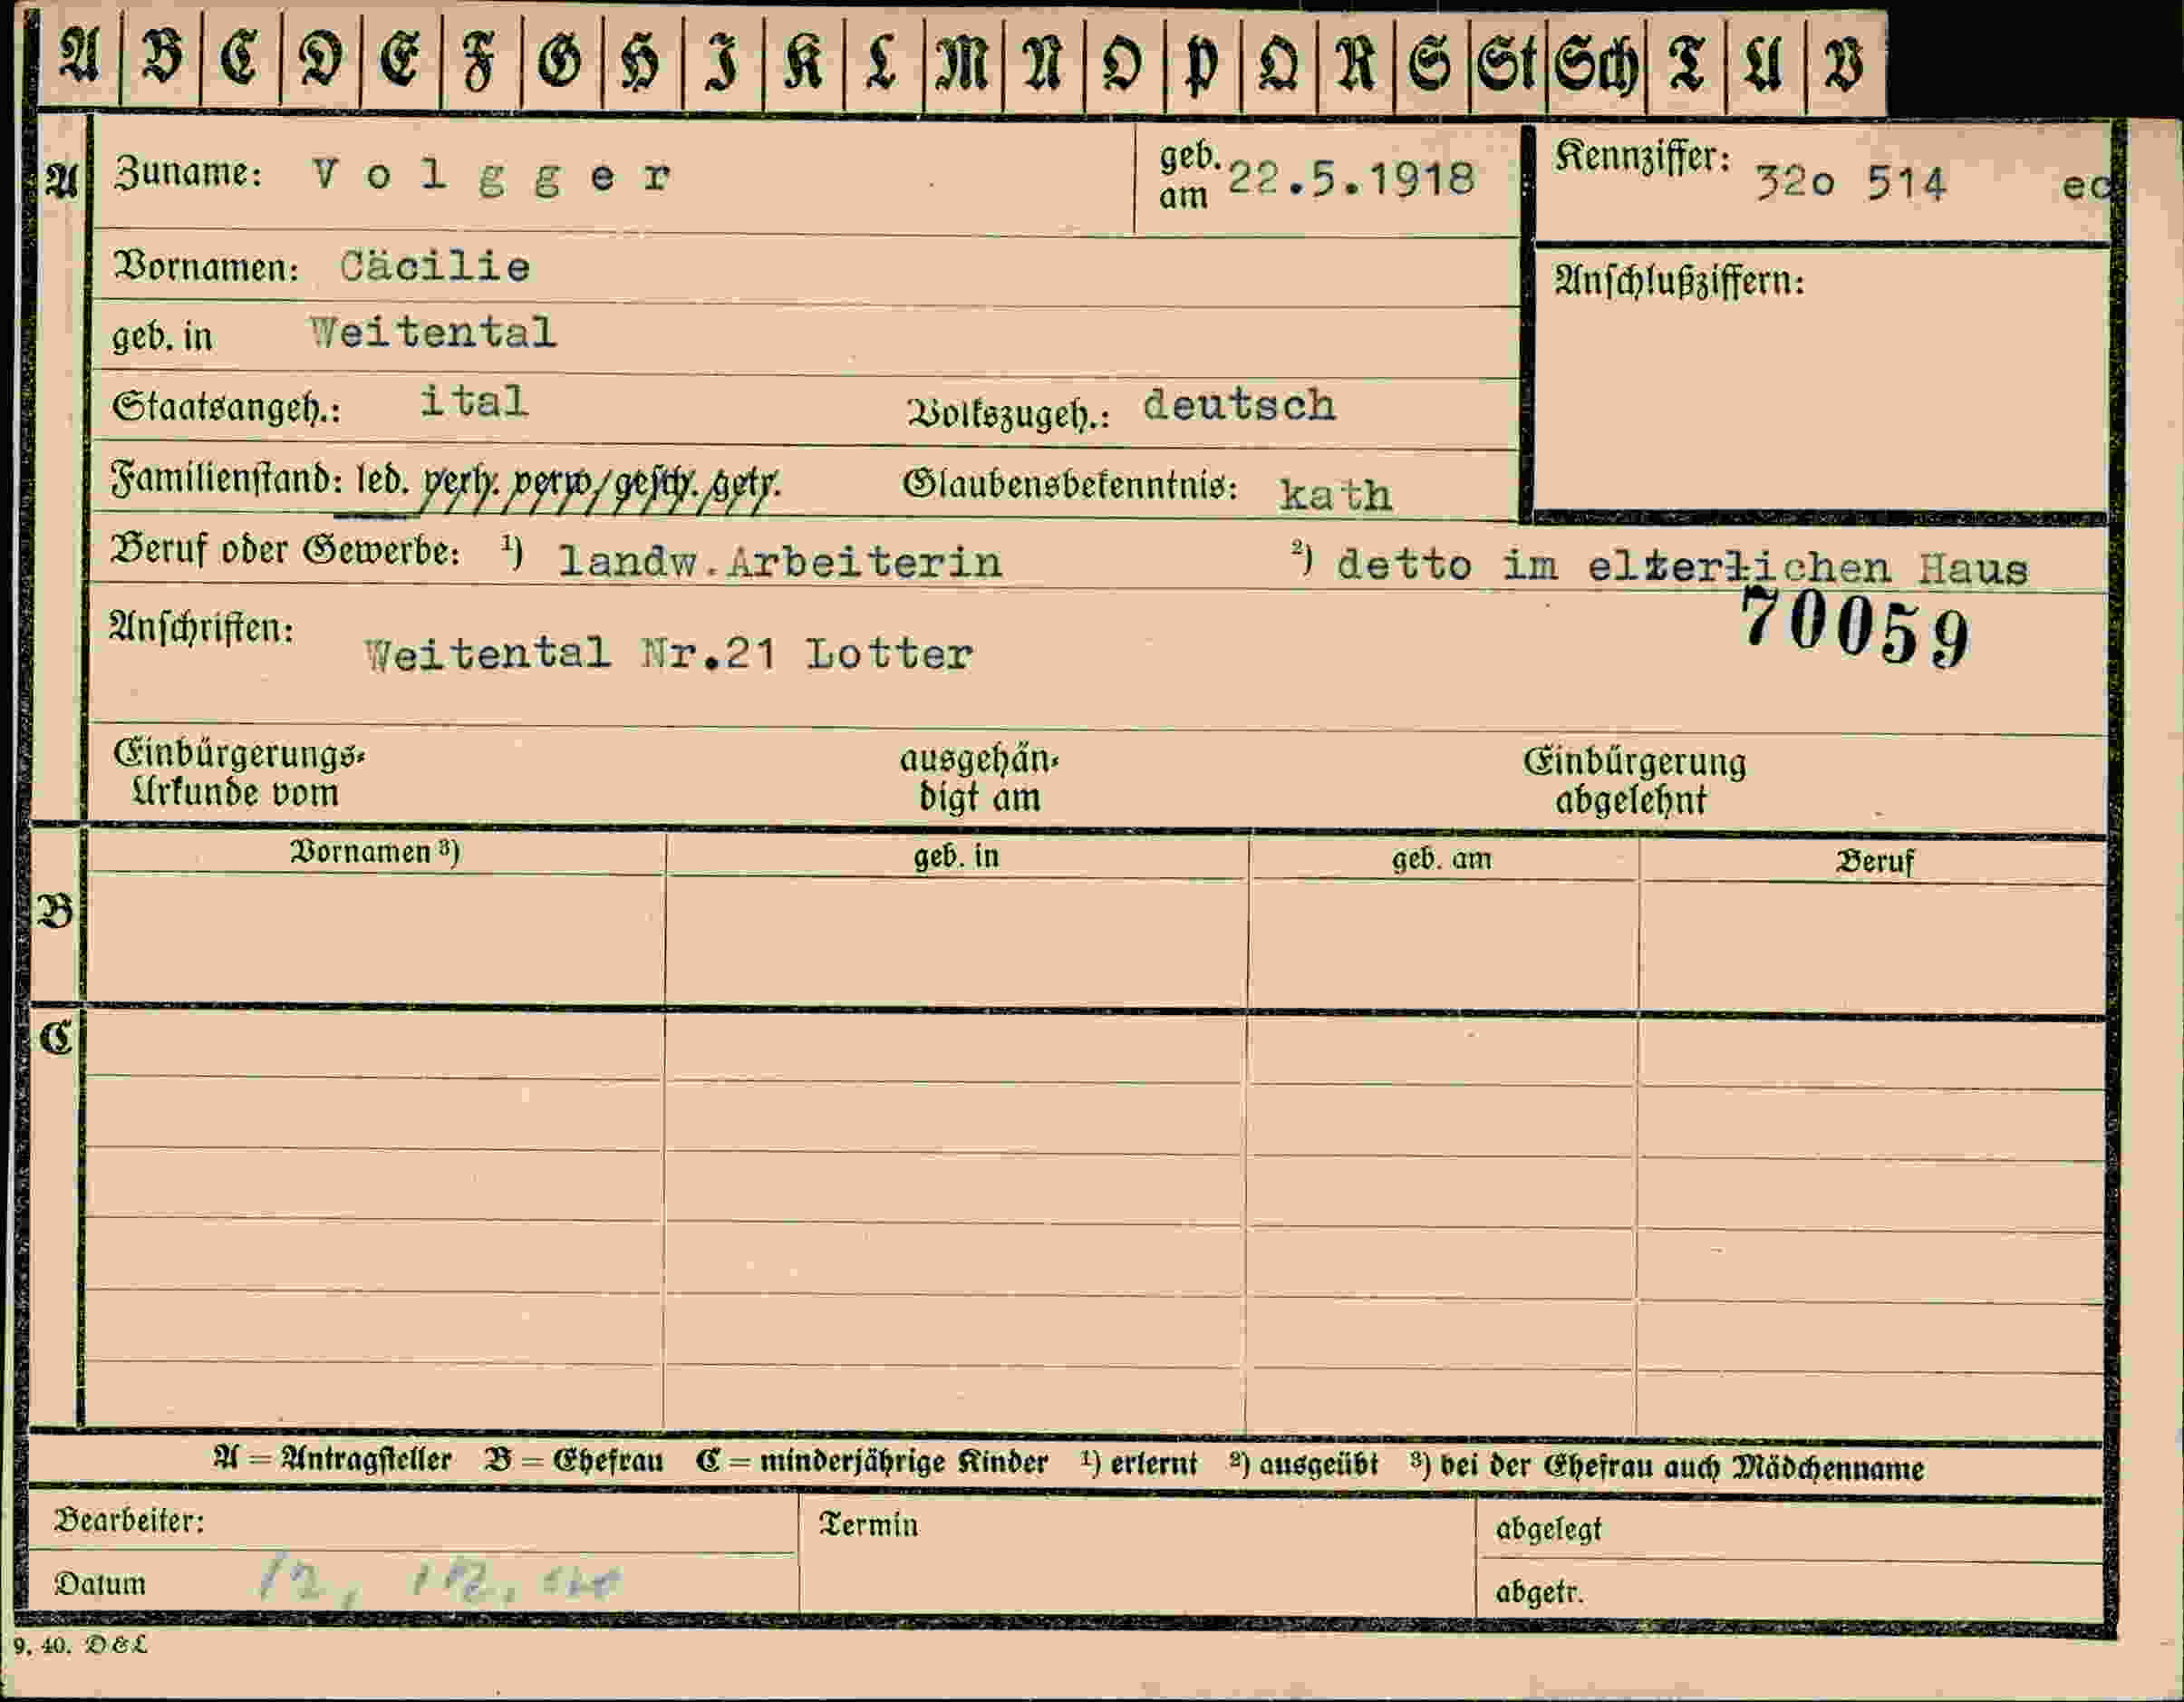 A B C D E F G H I K L M N O P Q R S St Sch T U V
A Zuname: Volgger geb. am 22.5.1918 Kennziffer: 32o 514 ec
Vornamen: Cäcilie Anschlußziffern:
geb. in Weitental
Staatsangeh.: ital Volkszugeh.: deutsch
Familienstand: led. verh. verw. gesch. getr. Glaubensbekenntnis: kath
Beruf oder Gewerbe: ¹) landw.Arbeiterin ²) detto im elterlichen Haus
70059
Anschriften: Weitental Nr.21 Lotter
Einbürgerungs- ausgehän- Einbürgerung
Urkunde vom digt am abgelehnt
Vornamen ³) geb. in geb. am Beruf
B
C
A = Antragsteller B = Ehefrau C = minderjährige Kinder ¹) erlernt ²) ausgeübt ³) bei der Ehefrau auch Mädchenname
Bearbeiter: Termin abgelegt
Datum 12, abgetr.
9. 40. D & L